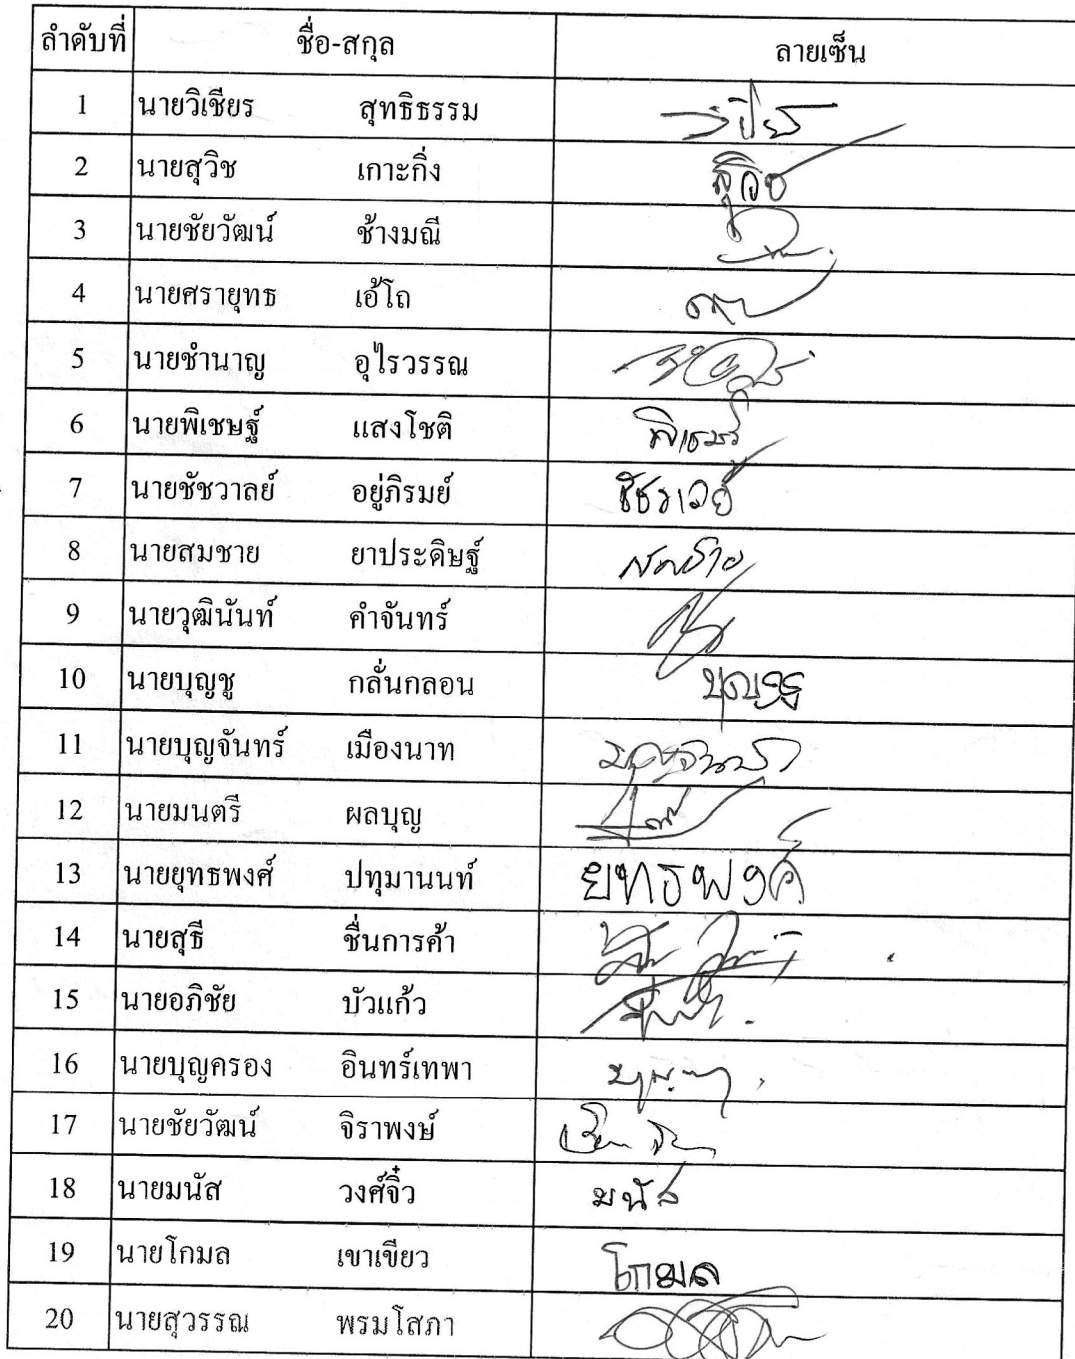 ลำดับที่ ชื่อ-สกุล ลายเซ็น
1 นายวิเชียร สุทธิธรรม
2 นายสุวิช เกาะกิ่ง สุวิช
3 นายชัยวัฒน์ ช้างมณี
4 นายศรายุทธ เอ้โถ
5 นายชำนาญ อุไรวรรณ
6 นายพิเชษฐ์ แสงโชติ พิเชษฐ์
7 นายชัชวาลย์ อยู่ภิรมย์
8 นายสมชาย ยาประดิษฐ์ สมชาย
9 นายวุฒินันท์ คำจันทร์
10 นายบุญชู กลั่นกลอน บุญชู
11 นายบุญจันทร์ เมืองนาท
12 นายมนตรี ผลบุญ
13 นายยุทธพงศ์ ปทุมานนท์ ยุทธพงค์
14 นายสุธี ชื่นการค้า
15 นายอภิชัย บัวแก้ว
16 นายบุญครอง อินทร์เทพา
17 นายชัยวัฒน์ จิราพงษ์
18 นายมนัส วงศ์จิ๋ว มนัส
19 นายโกมล เขาเขียว โกมล
20 นายสุวรรณ พรมโสภา